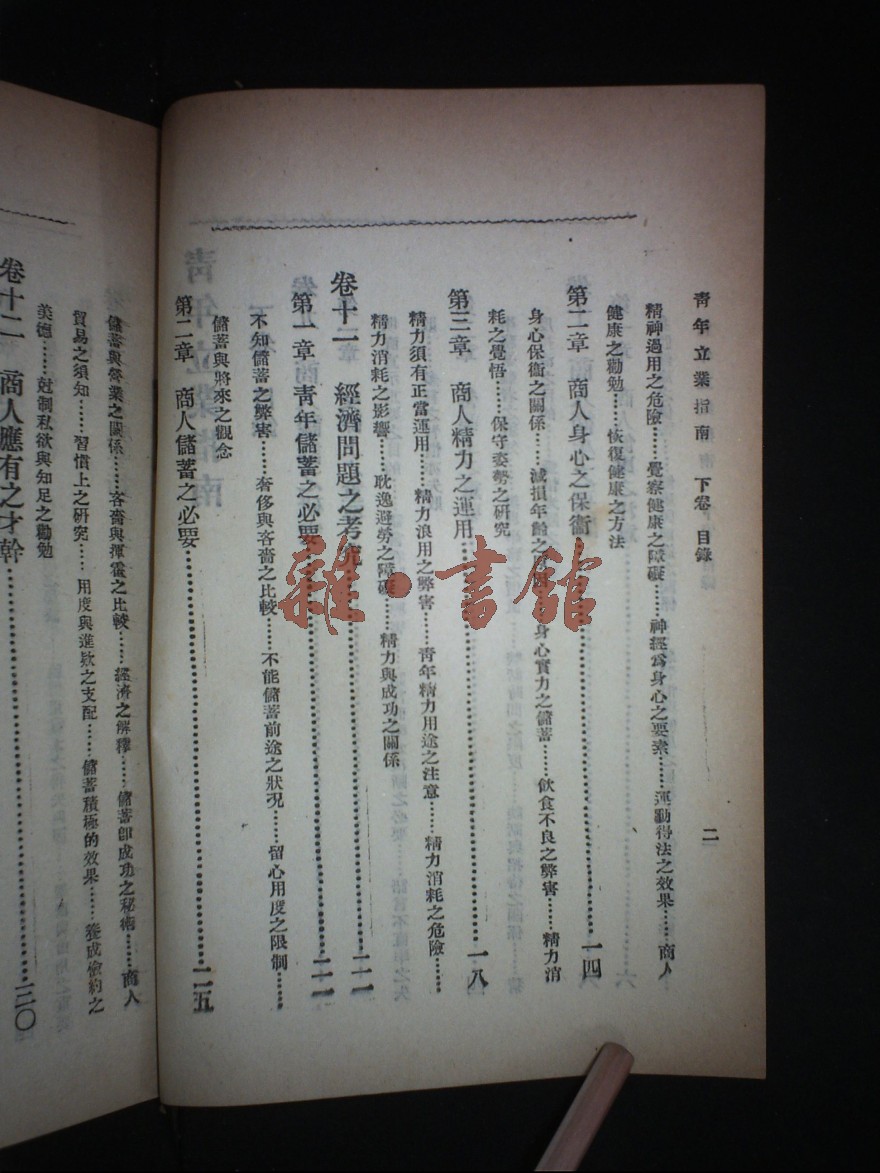 青年立業指南 下卷 目錄 二
精神過用之危險……覺察健康之障礙……神經爲身心之要素……運動得法之效果……商人
健康之勸勉……恢復健康之方法
第二章 商人身心之保衞……一四
身心保衞之關係……減損年齡之……身心實力之儲蓄……飲食不良之弊害……精力消
耗之覺悟……保守姿勢之研究
第三章 商人精力之運用……一八
精力須有正當運用……精力浪用之弊害……青年精力用途之注意……精力消耗之危險……
精力消耗之影響……耽逸避勞之障礙……精力與成功之關係
卷十一 經濟問題之考究……二一
第一章 青年儲蓄之必要……二一
不知儲蓄之弊害……奢侈與吝嗇之比較……不能儲蓄前途之狀況……留心用度之限制……
儲蓄與將來之觀念
第二章 商人儲蓄之必要……二五
儲蓄與營業之關係……吝嗇與揮霍之比較……經濟之解釋……儲蓄卽成功之秘術……商人
貿易之須知……習慣上之研究……用度與進欵之支配……儲蓄積極的效果……養成儉約之
美德……尅制私欲與知足之勸勉
卷十二 商人應有之才幹……三〇
雜·書館